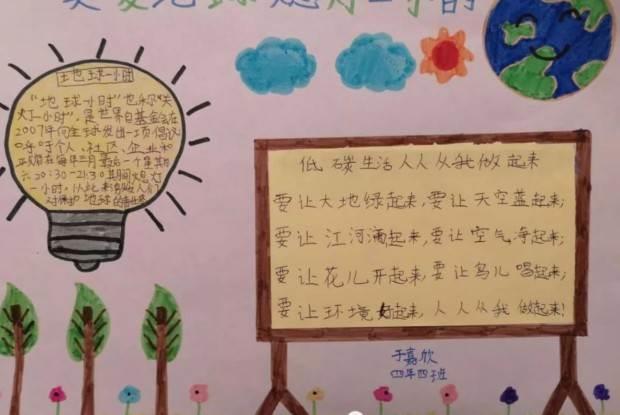 关爱地球熄灯一小时
地球一小时
"地球一小时"也称"关
灯一小时",是世界自基金会在
2007年向全球发出一项倡议
呼吁个人、社区、企业和
政府在每年三月最后一个星期
六20:30-21:30期间熄灯
一小时,以此来激励人们
对保护地球的责任感
低碳生活人人从我做起来
要让大地绿起来,要让天空蓝起来;
要让江河清起来,要让空气净起来;
要让花儿开起来,要让鸟儿唱起来;
要让环境好起来,人人从我做起来!
于嘉欣
四年四班